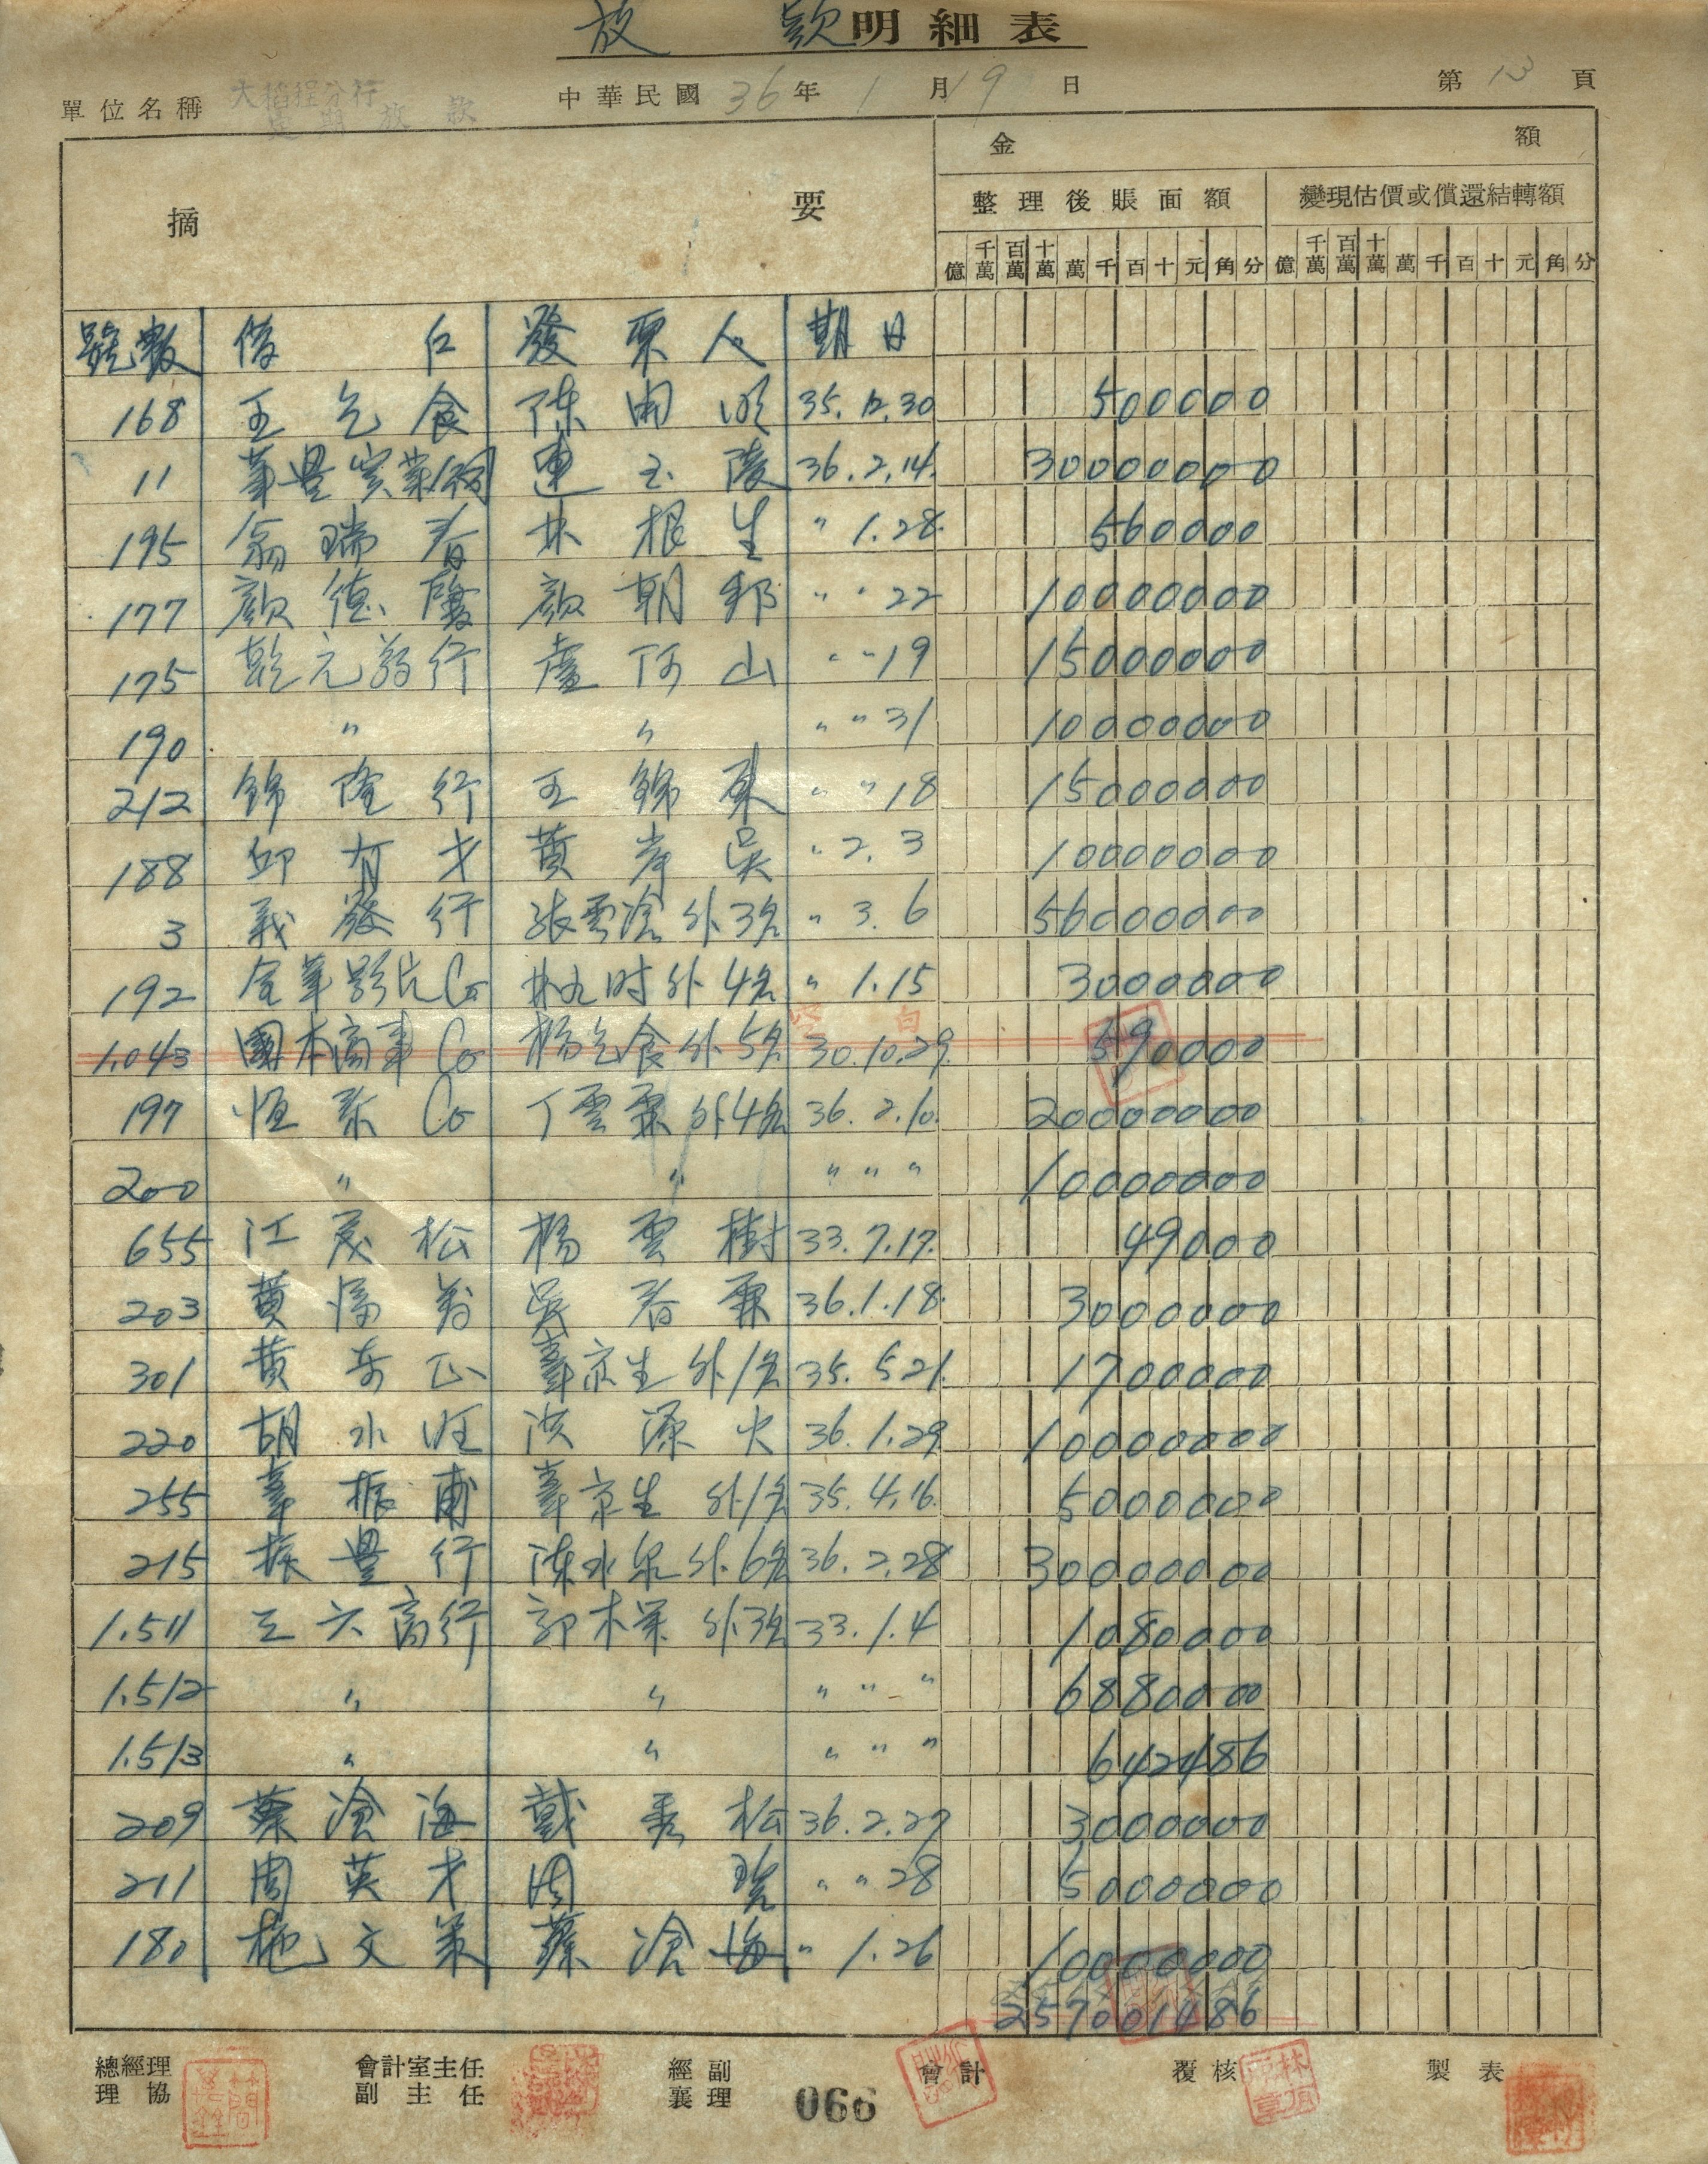 放款明細表
單位名稱 大稻埕分行 定期放款 中華民國36年1月19日 第13頁
摘要 金額
整理後賬面額 變現估價或償還結轉額
億 千萬 百萬 十萬 萬 千 百 十 元 角 分 億 千萬 百萬 十萬 萬 千 百 十 元 角 分
號數 發票人 期日
168 王乞食 陳開 35.12.30 500000
11 華豐實業 連玉陵 36.2.14. 30000000
195 翁瑞春 林根生 〃 1.28. 560000
177 顏德 顏朝邦 〃 〃 22 10000000
175 乾元葯行 盧阿山 〃 〃 19 15000000
190 〃 〃 〃 〃 31 10000000
212 錦隆行 王錦 〃 〃 18 15000000
188 邱有才 黃岸吳 〃 2.3 10000000
3 義發行 張雲滄外3名 〃 3.6 56000000
192 影片Co 林九时外4名 〃 1.15 3000000
1.043 國本商事Co 楊乞食外5名 30.10.29. 590000
197 恒 Co 丁雲霖外4名 36.2.10. 20000000
200 〃 〃 〃 〃 〃 10000000
655 江茂松 楊雲樹 33.7.17. 49000
203 黃 吳春霖 36.1.18. 3000000
301 黃 京生外1名 35.5.21. 1700000
220 胡水旺 洪源火 36.1.29 10000000
255 辜振甫 辜京生外1名 35.4.16. 5000000
215 振豐行 陳水泉外6名 36.2.28 30000000
1.511 三六商行 郭木 外3名 33.1.4 1080000
1.512 〃 〃 〃 〃 〃 6880000
1.513 〃 〃 〃 〃 〃 642486
209 蔡滄海 戴秀松 36.2.27 3000000
211 周英才 周 〃 〃 28 5000000
180 施文 蔡滄海 〃 1.26 10000000
257001486
總經理 會計室主任 經副 會計 覆核 製表
理協 副主任 襄理 066